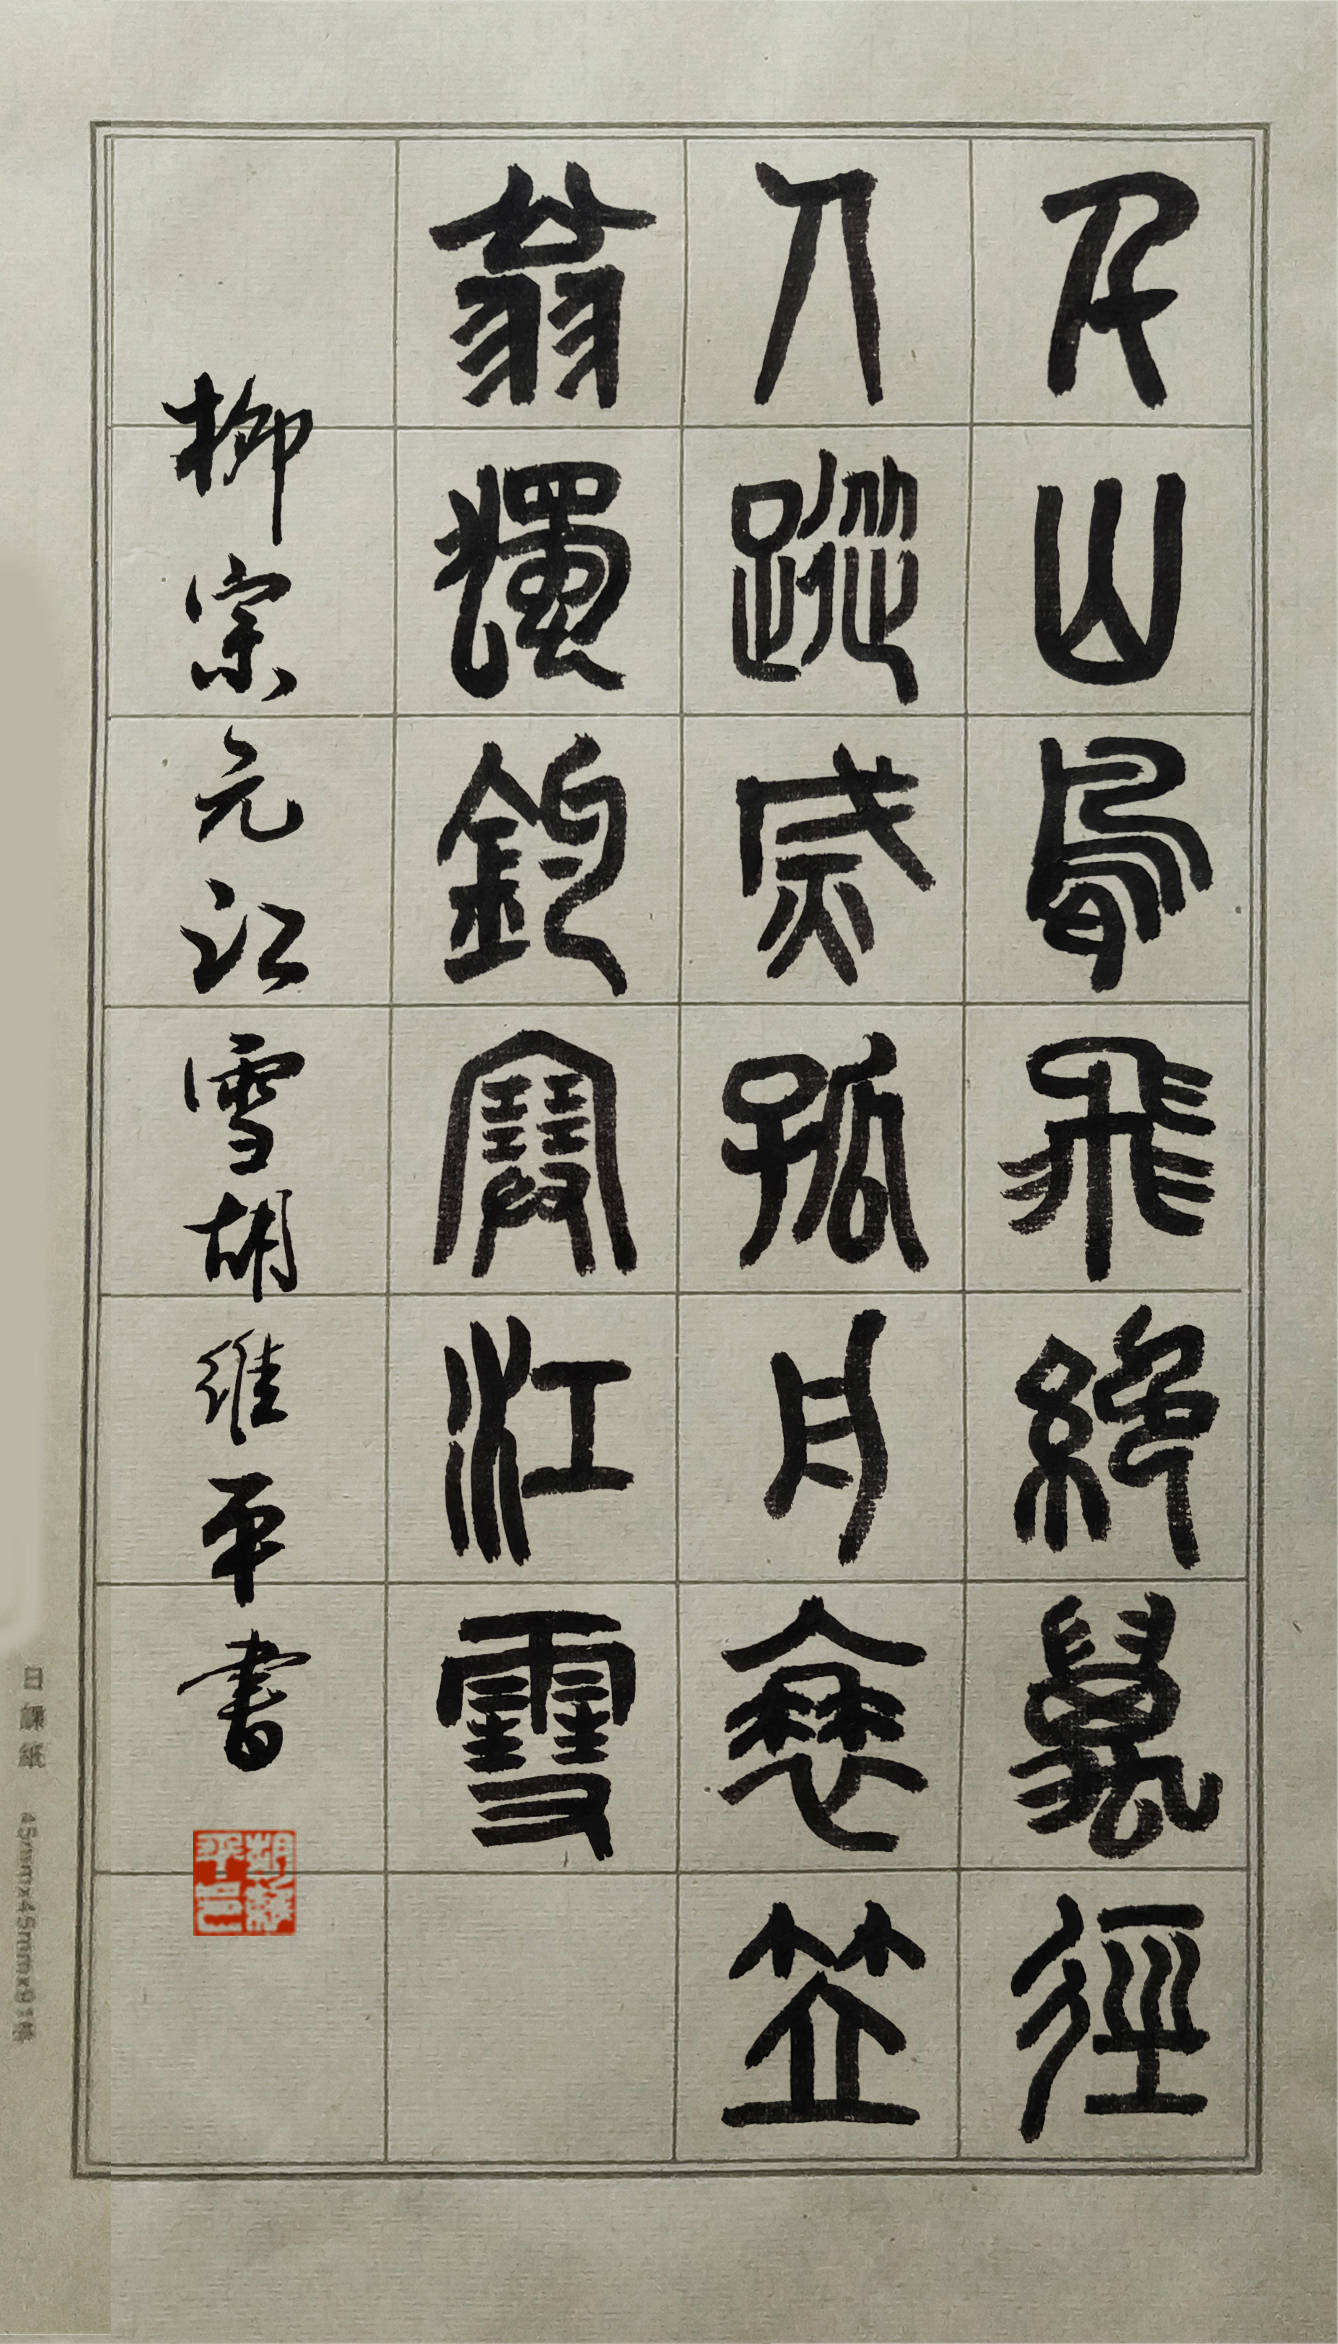 千山鳥飛絕萬徑
人蹤烕孤舟衰笠
翁獨釣寒江雪
柳宗元江雪胡維平書
胡維平印
日課紙 45mmx45mmx91格